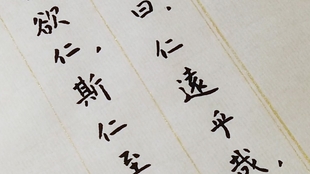 曰,仁遠乎哉,
欲仁,斯仁至